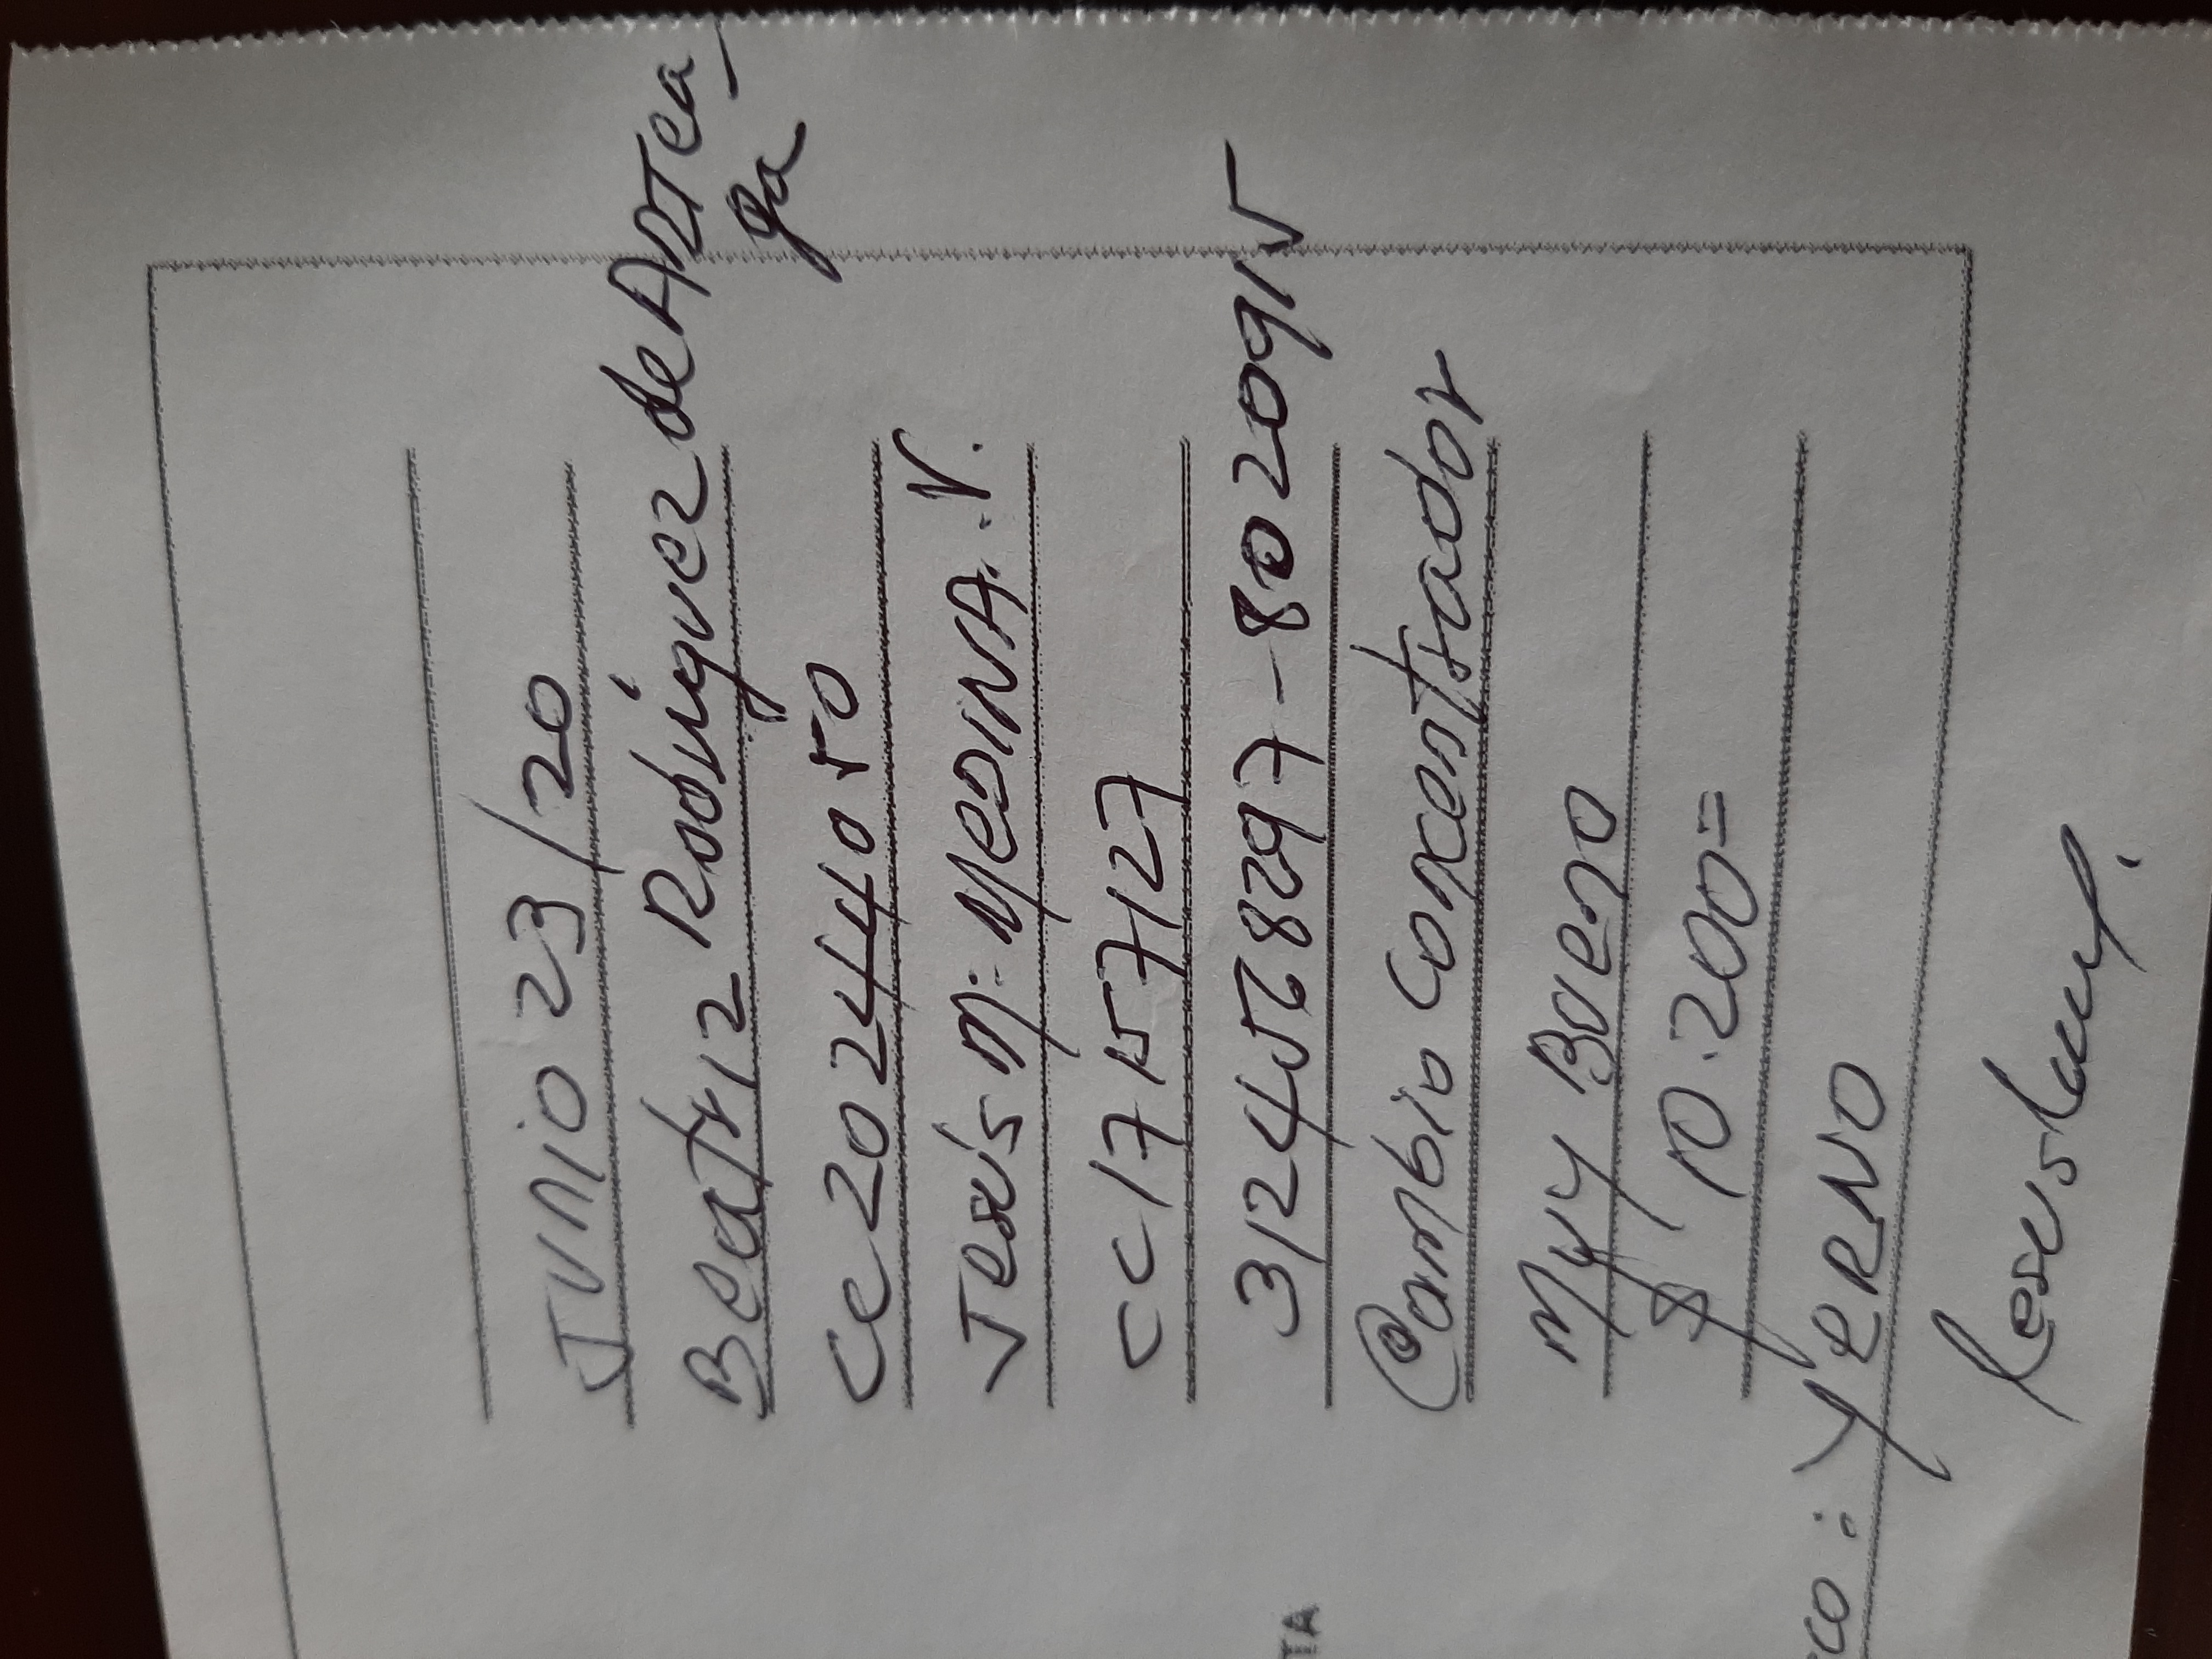 Junio 23/20
Beatriz Rodríguez de ARTea-
ga
CC 20244050
Jesús M. MEDINA. V.
CC 17157127
3124568297-8020915
Cambio concentrador
Muy Bueno
$ 10.200=
sco: YERNO
TIA